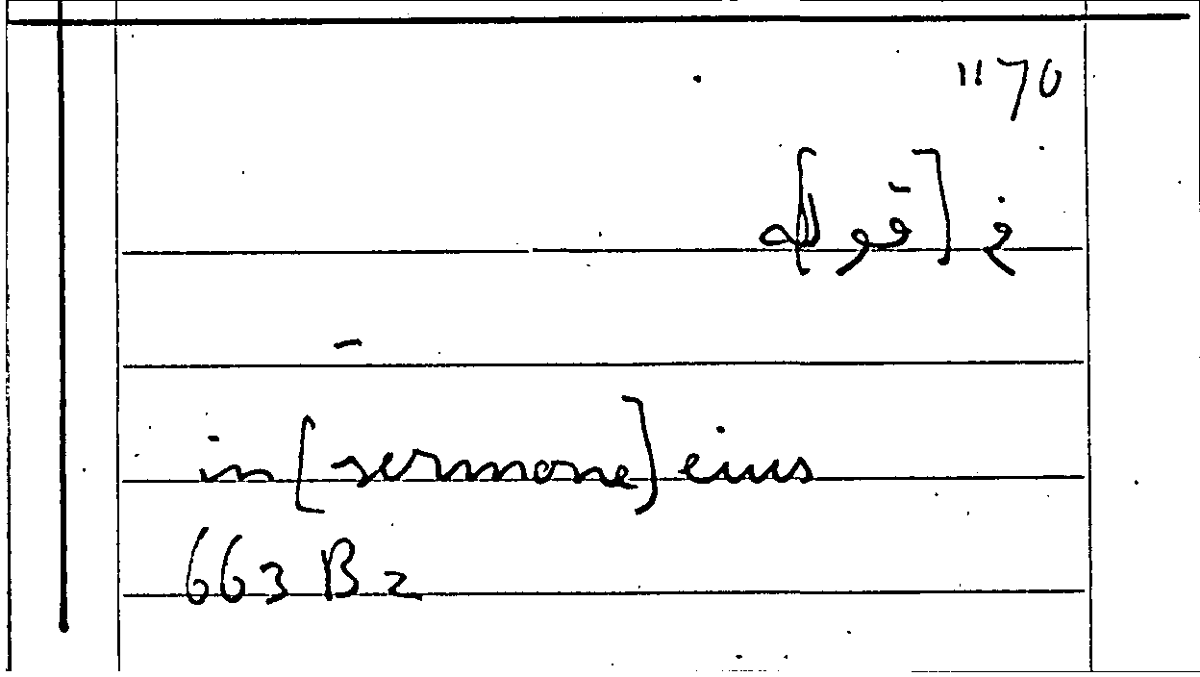 "70
في [قول]ه
in [sermone] eius
663 B 2